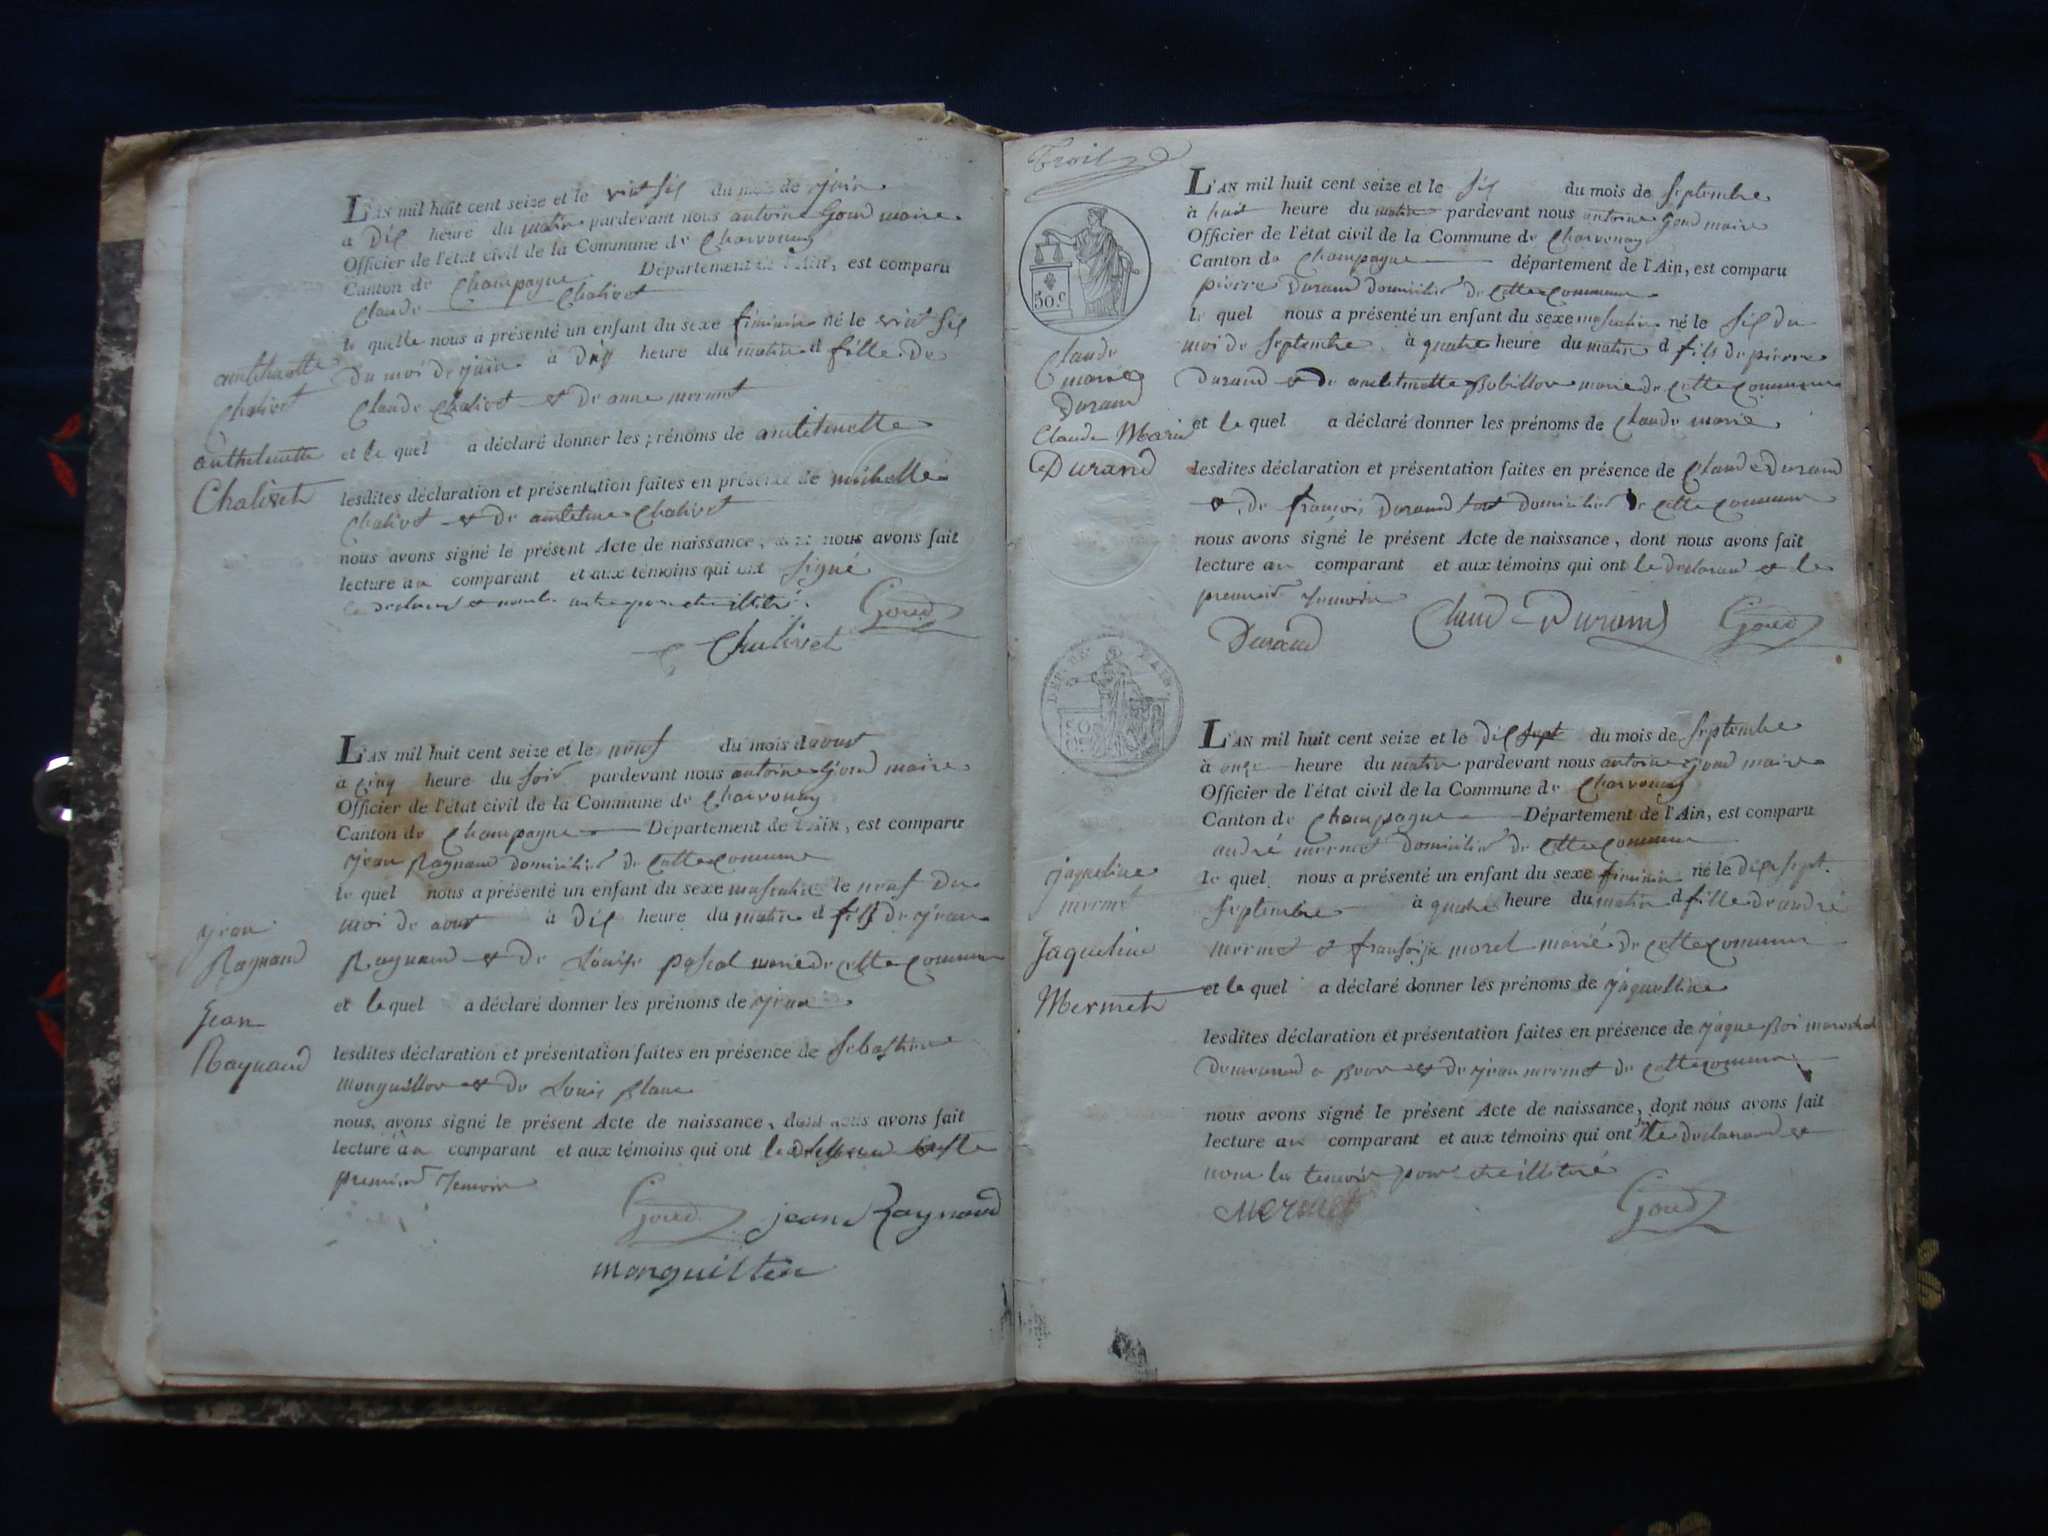 L'AN mil huit cent seize et le vint six du mois de juin
à dix heure du matin pardevant nous antoine Goud maire
Officier de l'état civil de la Commune de Charvonay
Canton de Champagne Département de l'Ain, est comparu
Claude Chalivet
le quelle nous a présenté un enfant du sexe féminin né le vint six
du moi de juin à dix heure du matin d fille de
Claude Chalivet et de anne mermet
et le quel a déclaré donner les prénoms de
lesdites déclaration et présentation faites en présence de michelle
Chalivet et de Chalivet
nous avons signé le présent Acte de naissance, dont nous avons fait
lecture au comparant et aux témoins qui ont signé
Goud
Chalivet
Chalivet
Anthelmette
Chalivet
L'AN mil huit cent seize et le neuf du mois d aout
à cinq heure du soir pardevant nous antoine Goud maire
Officier de l'état civil de la Commune de Charvonay
Canton de Champagne Département de l'Ain, est comparu
jean Raynaud domicilié de cette comune
le quel nous a présenté un enfant du sexe masculin le neuf du
moi de aout à dix heure du matin d fils de jean
Raynaud et de Louise pascal marié de cette commune
et le quel a déclaré donner les prénoms de jean
lesdites déclaration et présentation faites en présence de Sebastien
et de Louis blanc
nous avons signé le présent Acte de naissance, dont nous avons fait
lecture au comparant et aux témoins qui ont le
premier temoin
Goud jean Raynaud
jean
Raynaud
Jean
Raynaud
Trois
50 c
L'AN mil huit cent seize et le six du mois de septembre
à huit heure du matin pardevant nous antoine Goud maire
Officier de l'état civil de la Commune de Charvonay
Canton de Champagne département de l'Ain, est comparu
pierre Durand domicilié de cette commune
le quel nous a présenté un enfant du sexe masculin né le six du
moi de septembre à quatre heure du matin d fils de pierre
Durand et de Robillon marié de cette commune
et le quel a déclaré donner les prénoms de Claude marie
lesdites déclaration et présentation faites en présence de Claude Durand
et de francois Durand tout domicilié de cette commune
nous avons signé le présent Acte de naissance, dont nous avons fait
lecture au comparant et aux témoins qui ont le declarand et le
premier temoin
Durand Claud Durand Goud
Claude
marie
Durand
Claude Marie
Durand
L'AN mil huit cent seize et le dix sept du mois de septembre
à onze heure du matin pardevant nous antoine Goud maire
Officier de l'état civil de la Commune de Charvonay
Canton de Champagne Département de l'Ain, est comparu
andré mermet domicilié de cette commune
le quel nous a présenté un enfant du sexe féminin né le dix sept
septembre à quatre heure du matin d fille de andré
mermet et fransoise morel marié de cette comune
et le quel a déclaré donner les prénoms de jaqueline
lesdites déclaration et présentation faites en présence de jaque Roi marechal
et de jean mermet de cette comune
nous avons signé le présent Acte de naissance, dont nous avons fait
lecture au comparant et aux témoins qui ont le declarand et
non les temoin pour etre illitéré
Mermet Goud
jaqueline
mermet
Jaqueline
Mermet